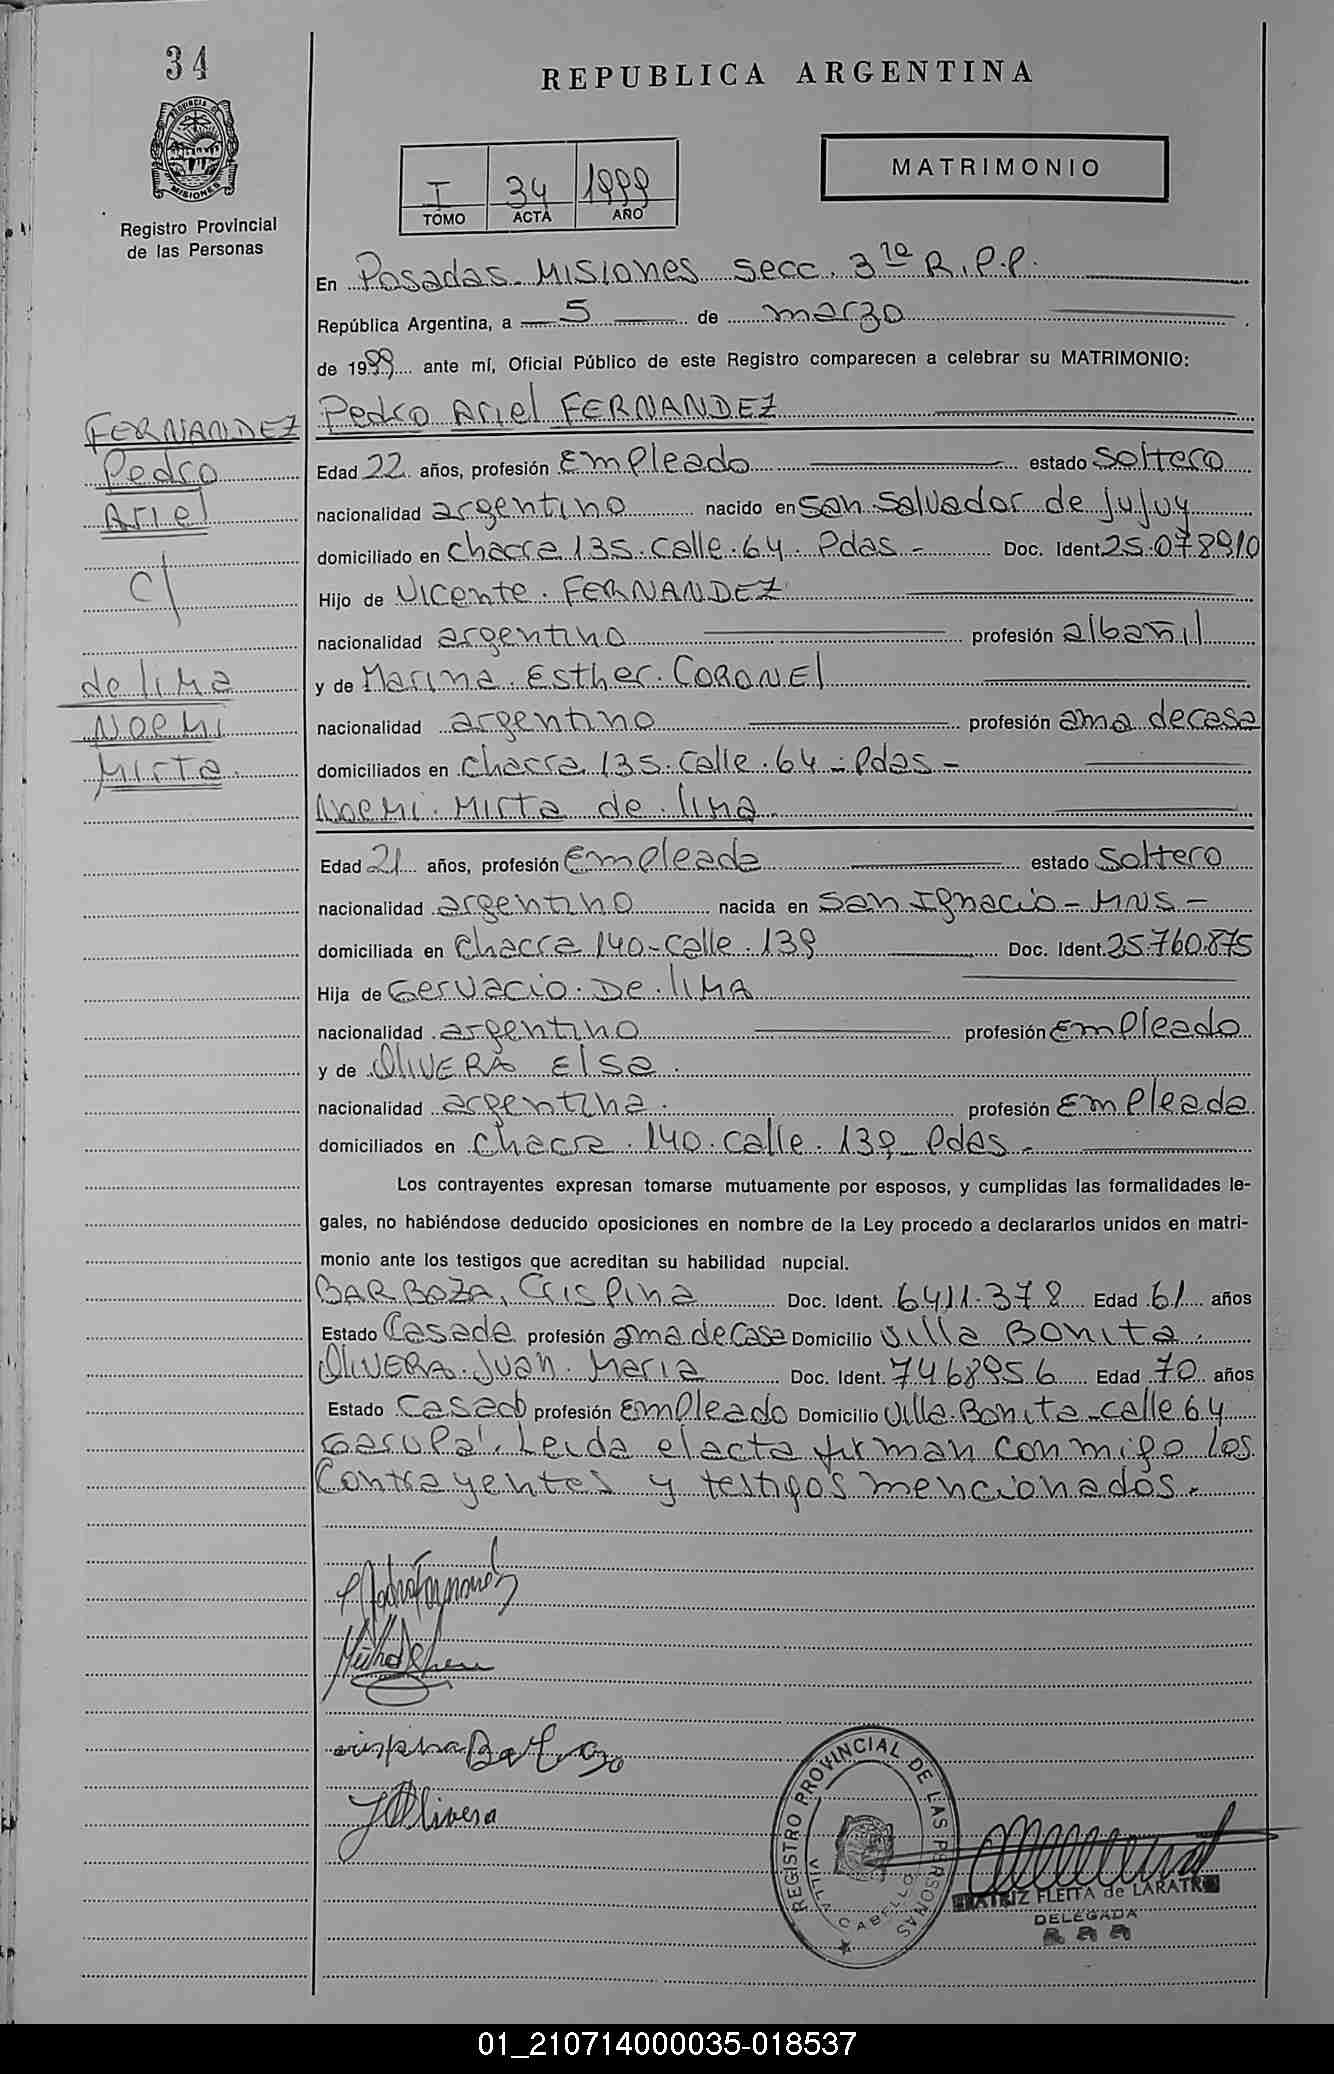 34
REPUBLICA ARGENTINA
PROVINCIA DE
MISIONES
Registro Provincial
de las Personas
I 34 1999
TOMO ACTA AÑO
MATRIMONIO
En Posadas Misiones secc. 3ra R.P.P.
República Argentina, a 5 de marzo
de 1999 ante mí, Oficial Público de este Registro comparecen a celebrar su MATRIMONIO:
FERNANDEZ
Pedro
Ariel
c/
de lima
Noemi
Mirta.
Pedro Ariel FERNANDEZ
Edad 22 años, profesión Empleado estado Soltero
nacionalidad argentino nacido en San Salvador de Jujuy
domiciliado en chacra 135. calle. 64. Pdas - Doc. Ident 25.078910
Hijo de Vicente. FERNANDEZ
nacionalidad argentino profesión albañil
y de Marina. Esther. CORONEl
nacionalidad argentino profesión ama de casa
domiciliados en chacra. 135. Calle. 64 - Pdas -
Noemi. Mirta de. lima.
Edad 21 años, profesión Empleada estado Soltero
nacionalidad argentino nacida en San Ignacio - MNS -
domiciliada en Chacra 140 - Calle. 139 Doc. Ident. 25.760.875
Hija de Gervacio. De. lIMA
nacionalidad argentino profesión Empleado
y de OlIVERA Elsa.
nacionalidad argentina. profesión Empleada
domiciliados en chacra. 140. calle. 139 Pdas -
Los contrayentes expresan tomarse mutuamente por esposos, y cumplidas las formalidades le-
gales, no habiéndose deducido oposiciones en nombre de la Ley procedo a declararlos unidos en matri-
monio ante los testigos que acreditan su habilidad nupcial.
BARBOZA, Crispina Doc. Ident. 6411.378 Edad 61 años
Estado Casada profesión ama de casa Domicilio Villa Bonita.
OlIVERA. Juan. Maria Doc. Ident. 7468956 Edad 70 años
Estado Casado profesión Empleado Domicilio Villa. Bonita - calle 64
Garupa'. Leida el acta firman conmigo los
Contrayentes y testigos mencionados. -
Crispina Barboza
J Olivera
REGISTRO PROVINCIAL DE LAS PERSONAS
VILLA CABELLO
BEATRIZ FLEITA de LARATRO
DELEGADA
01_210714000035-018537